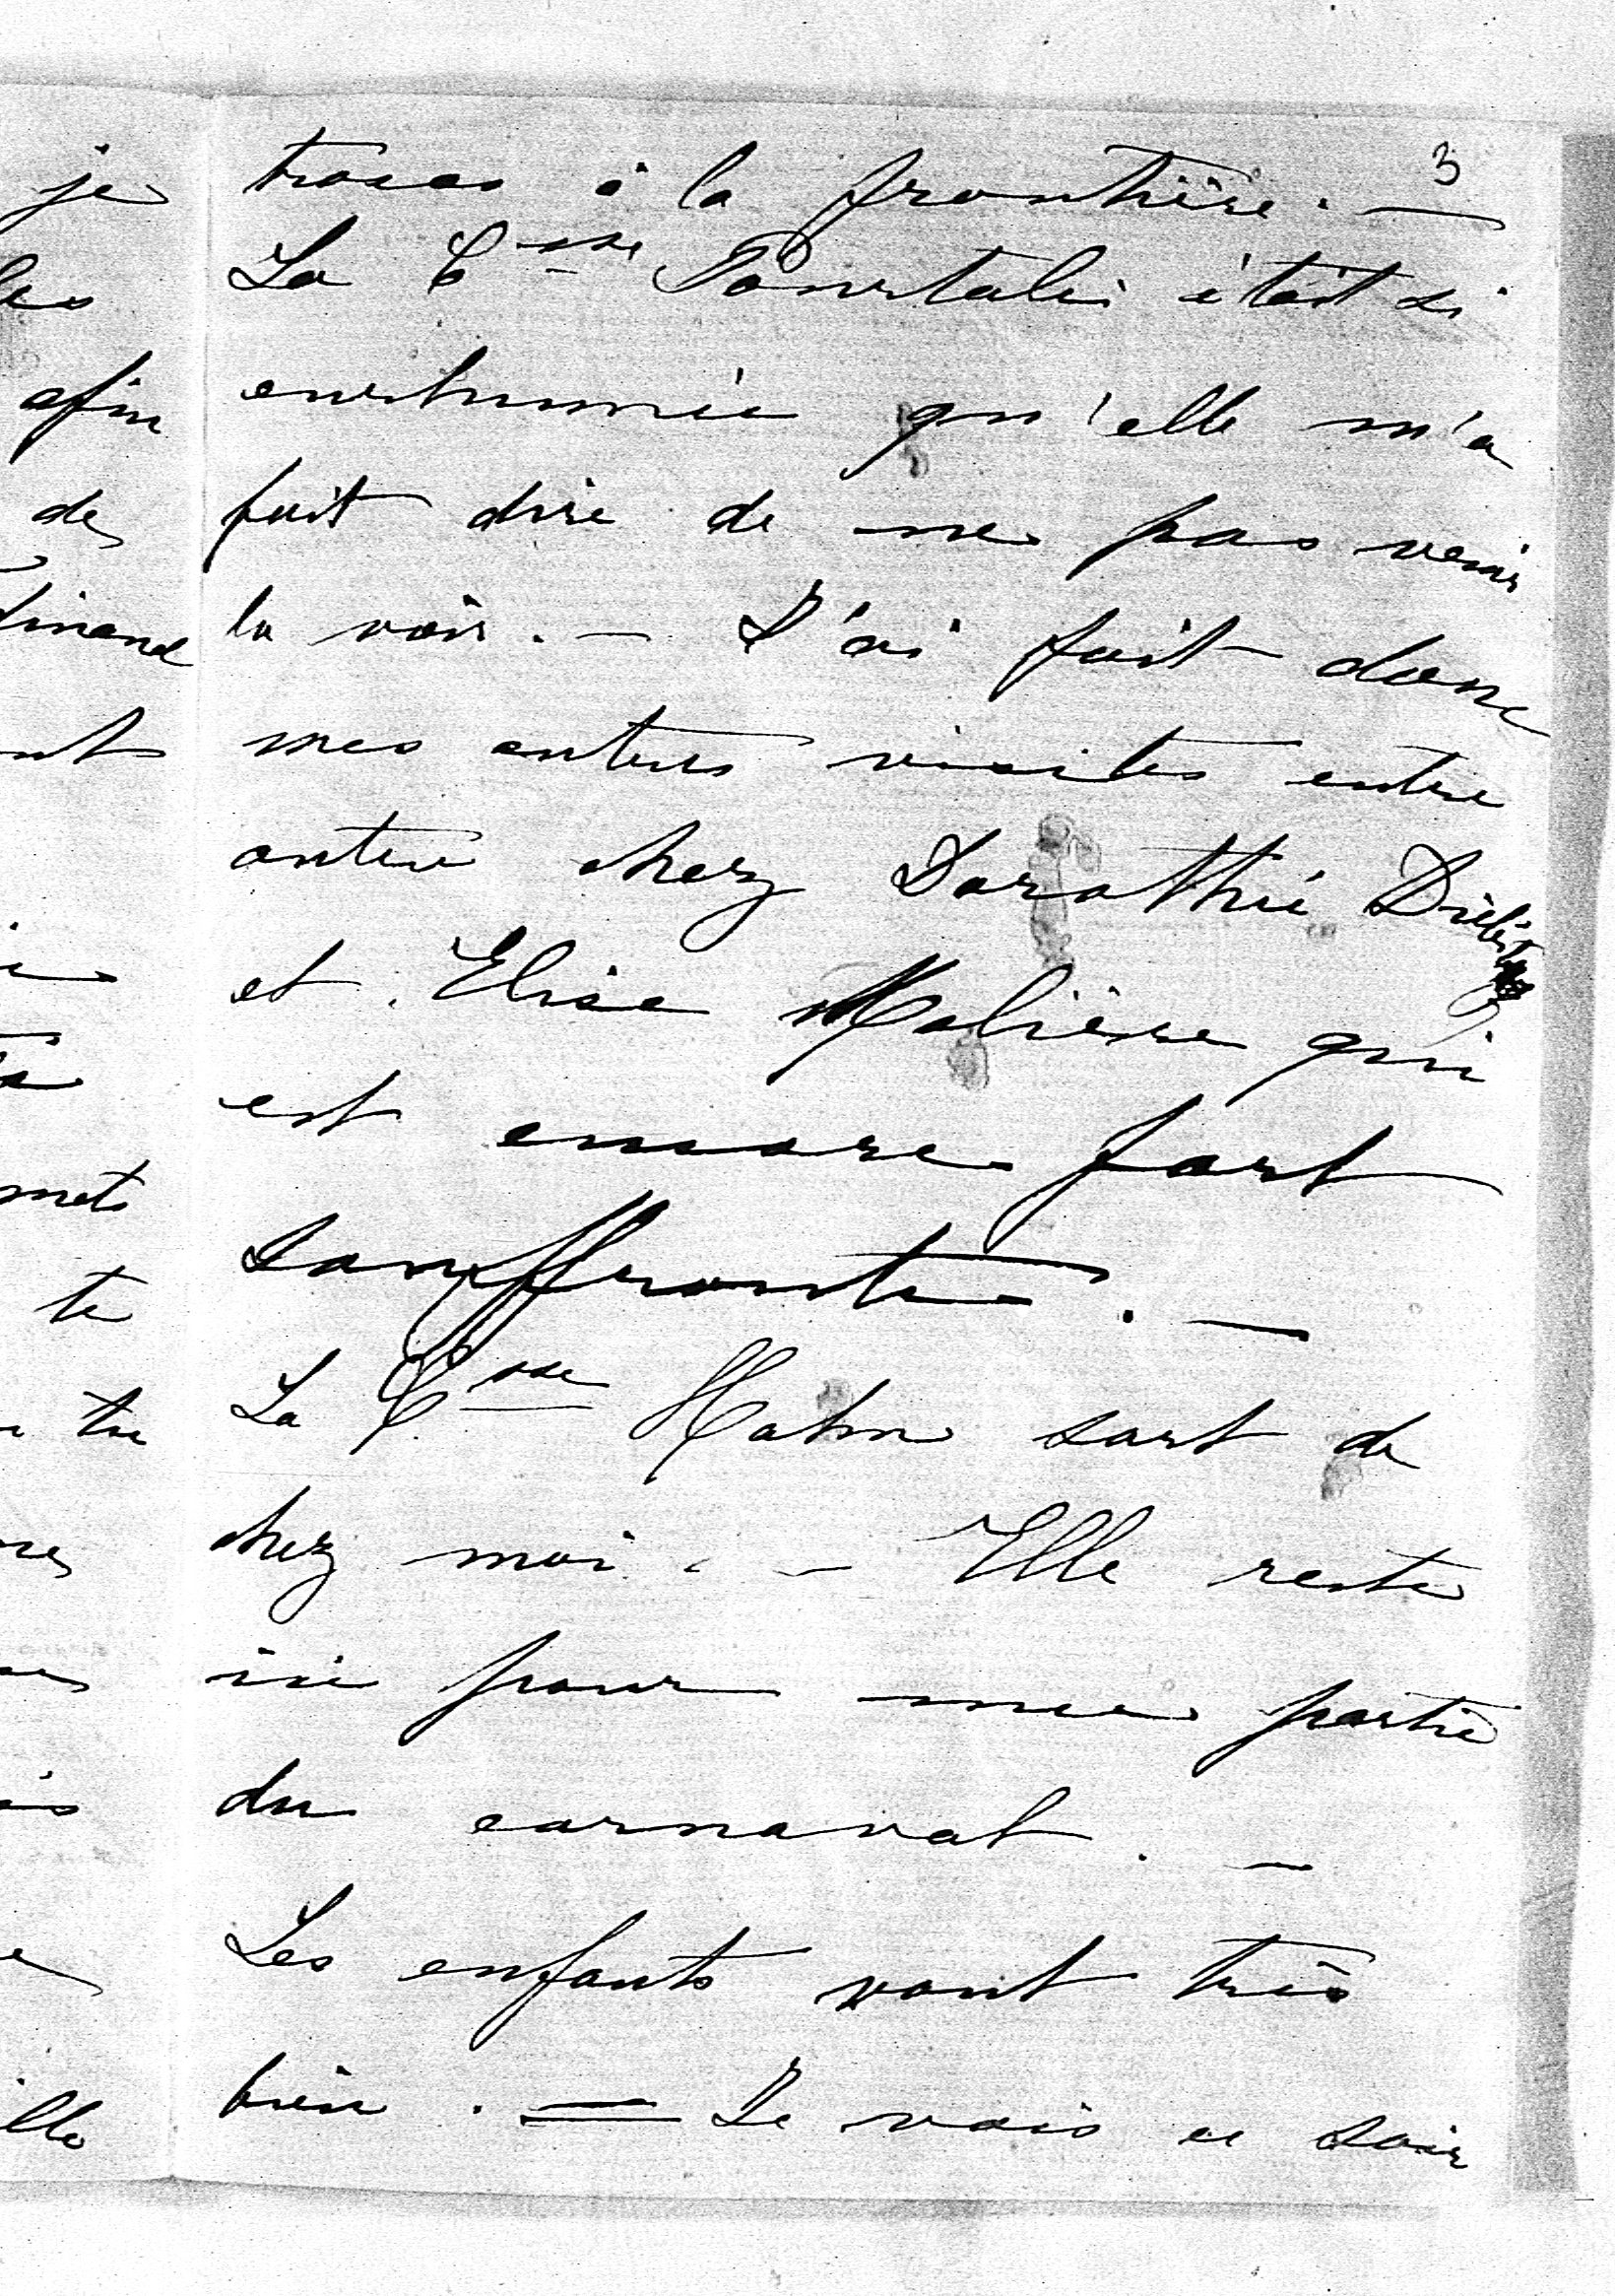 3
tracas à la frontière. —
La Csse Pourtalès était si
enrhumée qu'elle m'a
fait dire de ne pas venir
la voir. — J'ai fait donc
mes autres visites entre
autre chez Dorothée
et Elise Molière qui
est encore fort
souffrante. —
La Csse Hahn sort de
chez moi. — Elle reste
ici pour une partie
du carnaval. —
Les enfants vont très
bien. — Je vais ce soir
je
les
afin
de
nt
mets
te
tu